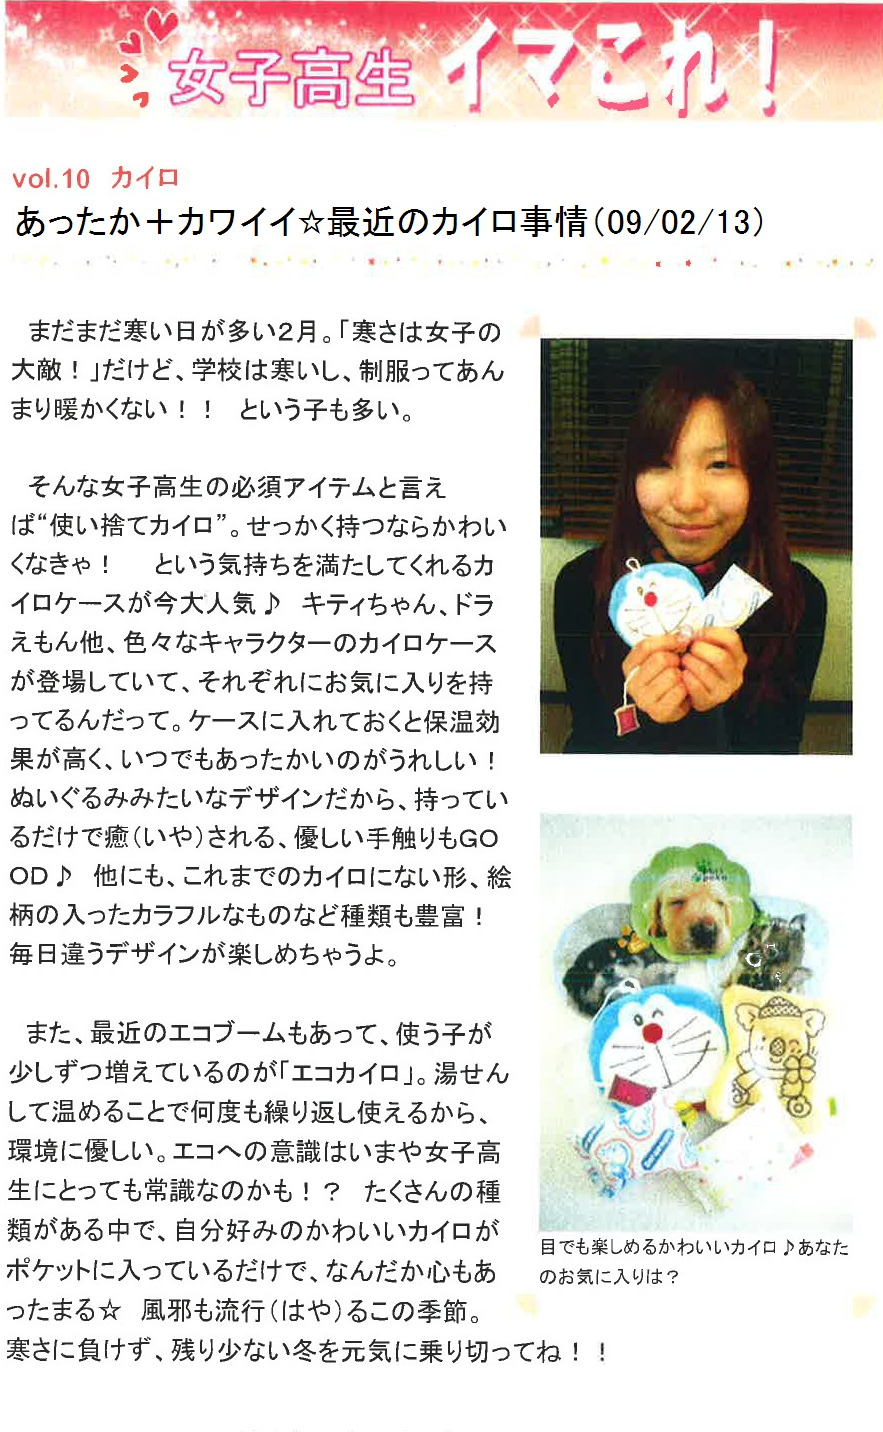 女子高生 イマこれ！
vol.10　カイロ
あったか＋カワイイ☆最近のカイロ事情（09/02/13）
まだまだ寒い日が多い２月。「寒さは女子の
大敵！」だけど、学校は寒いし、制服ってあん
まり暖かくない！！　という子も多い。
そんな女子高生の必須アイテムと言え
ば“使い捨てカイロ”。せっかく持つならかわい
くなきゃ！　という気持ちを満たしてくれるカ
イロケースが今大人気♪　キティちゃん、ドラ
えもん他、色々なキャラクターのカイロケース
が登場していて、それぞれにお気に入りを持
ってるんだって。ケースに入れておくと保温効
果が高く、いつでもあったかいのがうれしい！
ぬいぐるみみたいなデザインだから、持ってい
るだけで癒（いや）される、優しい手触りもＧＯ
ＯＤ♪　他にも、これまでのカイロにない形、絵
柄の入ったカラフルなものなど種類も豊富！
毎日違うデザインが楽しめちゃうよ。
また、最近のエコブームもあって、使う子が
少しずつ増えているのが「エコカイロ」。湯せん
して温めることで何度も繰り返し使えるから、
環境に優しい。エコへの意識はいまや女子高
生にとっても常識なのかも！？　たくさんの種
類がある中で、自分好みのかわいいカイロが
ポケットに入っているだけで、なんだか心もあ
ったまる☆　風邪も流行（はや）るこの季節。
寒さに負けず、残り少ない冬を元気に乗り切ってね！！
目でも楽しめるかわいいカイロ♪あなた
のお気に入りは？